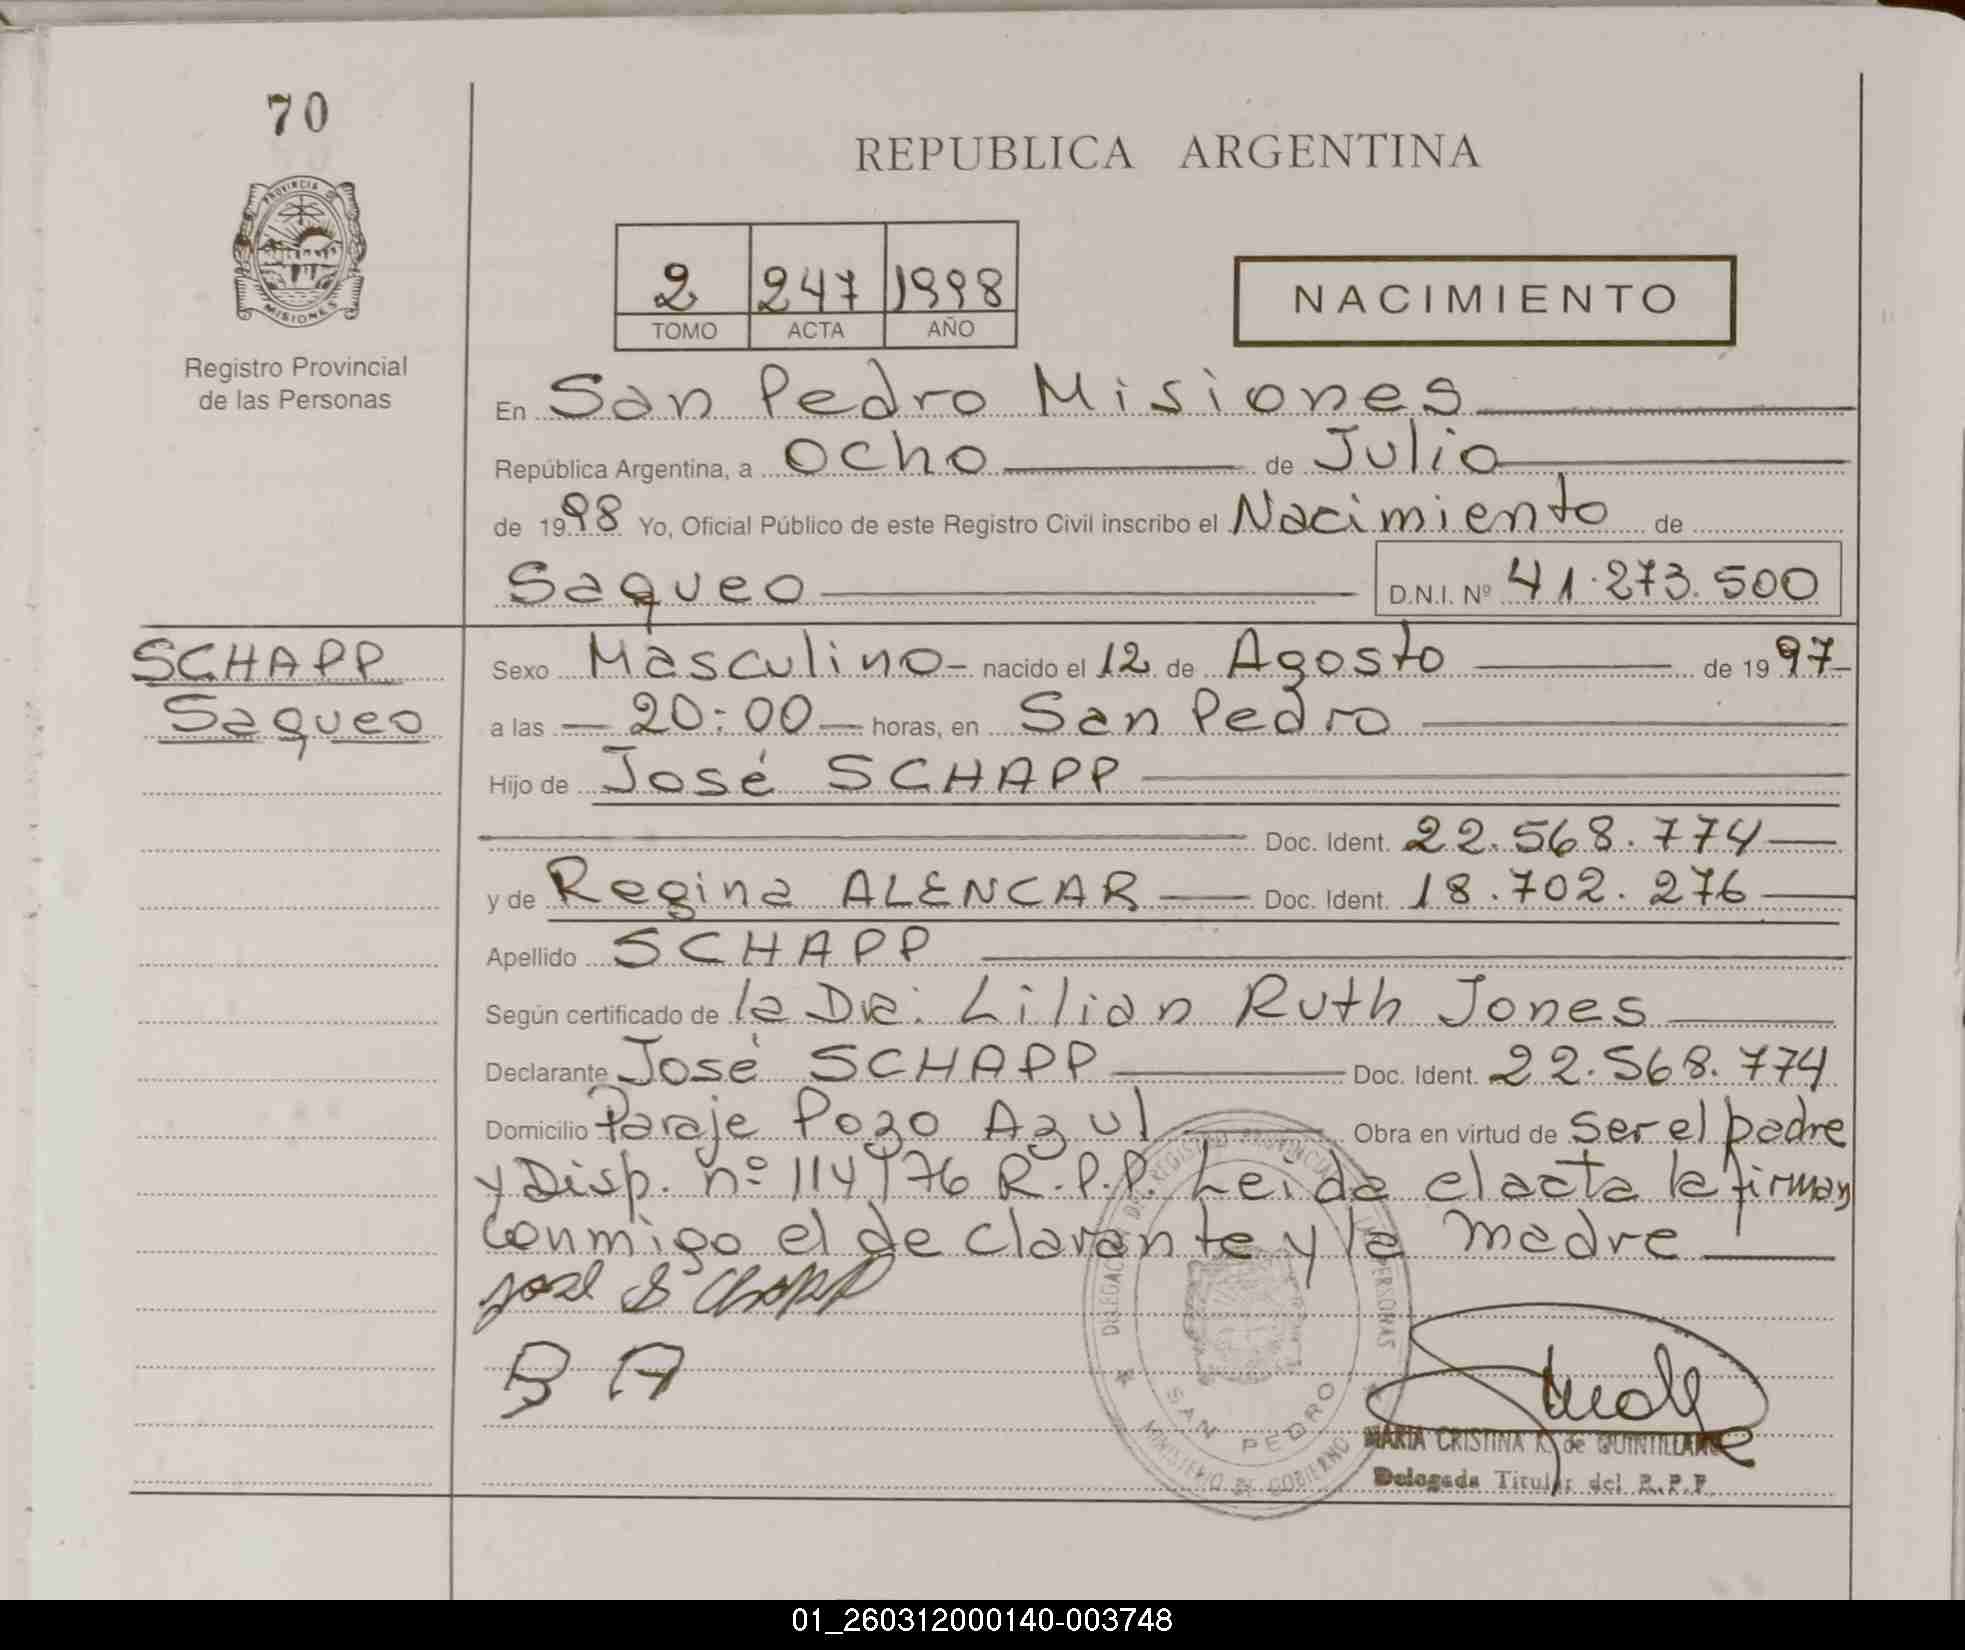 70
REPUBLICA ARGENTINA
PROVINCIA DE
MISIONES
Registro Provincial
de las Personas
2 247 1998
TOMO ACTA AÑO
NACIMIENTO
En San Pedro Misiones
República Argentina, a ocho de Julio
de 1998 Yo, Oficial Público de este Registro Civil inscribo el Nacimiento de
Saqueo D.N.I. Nº 41.273.500
SCHAPP
Saqueo
Sexo Masculino nacido el 12 de Agosto de 1997
a las 20:00 horas, en San Pedro
Hijo de José SCHAPP
Doc. Ident. 22.568.774
y de Regina ALENCAR Doc. Ident. 18.702.276
Apellido SCHAPP
Según certificado de la Dra: Lilian Ruth Jones
Declarante José SCHAPP Doc. Ident. 22.568.774
Domicilio Paraje Pozo Azul Obra en virtud de ser el padre
y Disp. nº 114/76 R.P.P. Leída el acta la firman
conmigo el declarante y la madre
José Schapp
DELEGACION DEL REGISTRO PROVINCIAL DE LAS PERSONAS
SAN PEDRO
MINISTERIO DE GOBIERNO
MARIA CRISTINA K. de QUINTILLAN
Delegada Titular del R.P.P.
01_260312000140-003748